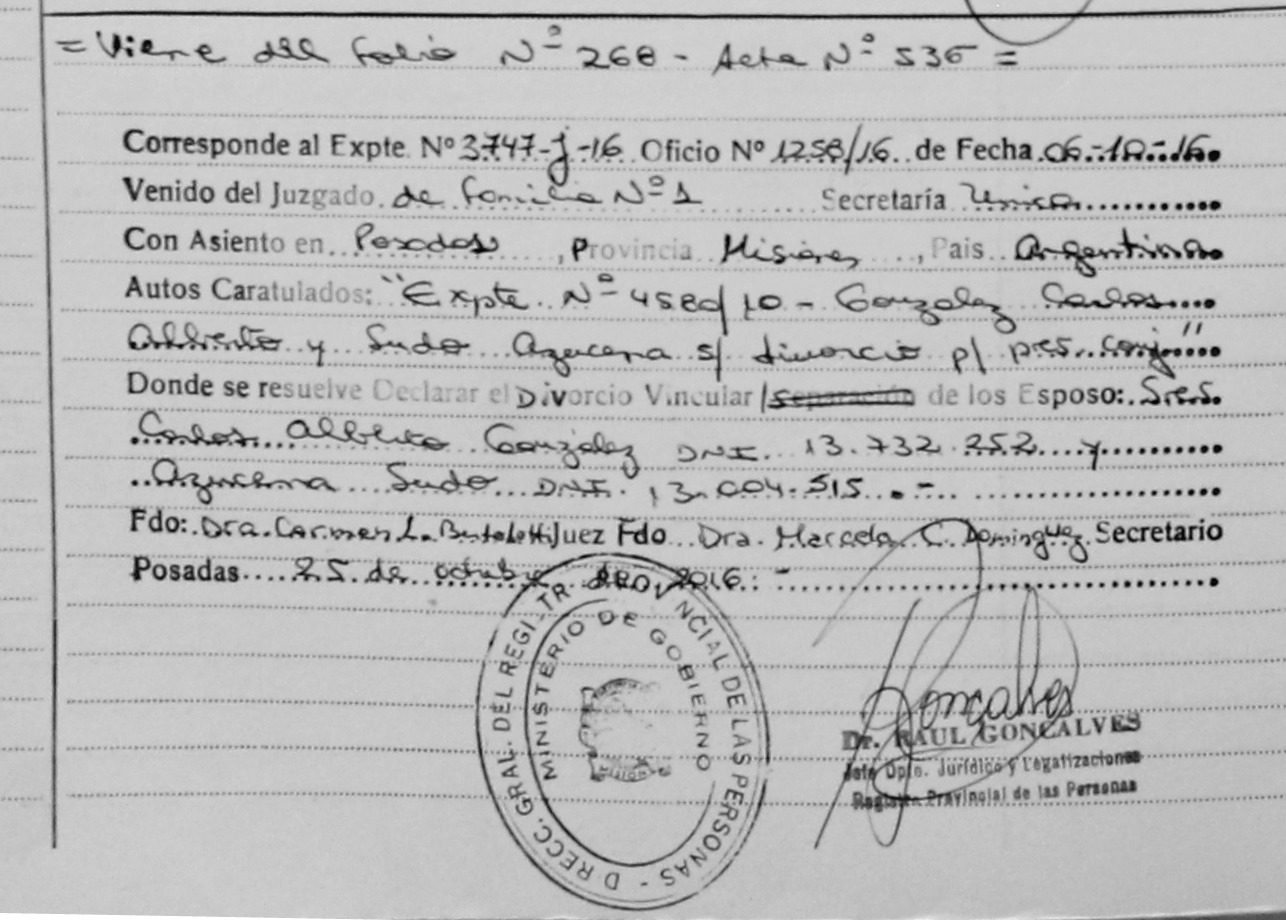 = Viene del Folio Nº 268 - Acta Nº 536 =
Corresponde al Expte. Nº 3747-J-16 Oficio Nº 1258/16 de Fecha 06-10-16
Venido del Juzgado de Familia Nº 1 Secretaría Unica
Con Asiento en Posadas, Provincia Misiones, Pais Argentina
Autos Caratulados: "Expte Nº 4580/10 - Gonzalez Carlos
Alberto y Sudo Azucena s/ divorcio p/ pres. conj"
Donde se resuelve Declarar el Divorcio Vincular/separación de los Esposo: Sres.
Carlos Alberto Gonzalez DNI. 13.732.252 y
Azucena Sudo DNI. 13.004.515.-
Fdo: Dra. Carmen L. Bertolotti Juez Fdo Dra. Marcela C. Dominguez Secretario
Posadas 25 de octubre del 2016.-
D RECC. GRAL. DEL REGISTR NCIAL DE LAS PERSONAS -
MINISTERIO DE GOBIERNO
Goncalves
Dr. RAUL GONCALVES
Jefe Dpto. Jurídico y Legalizaciones
Registro Provincial de las Personas